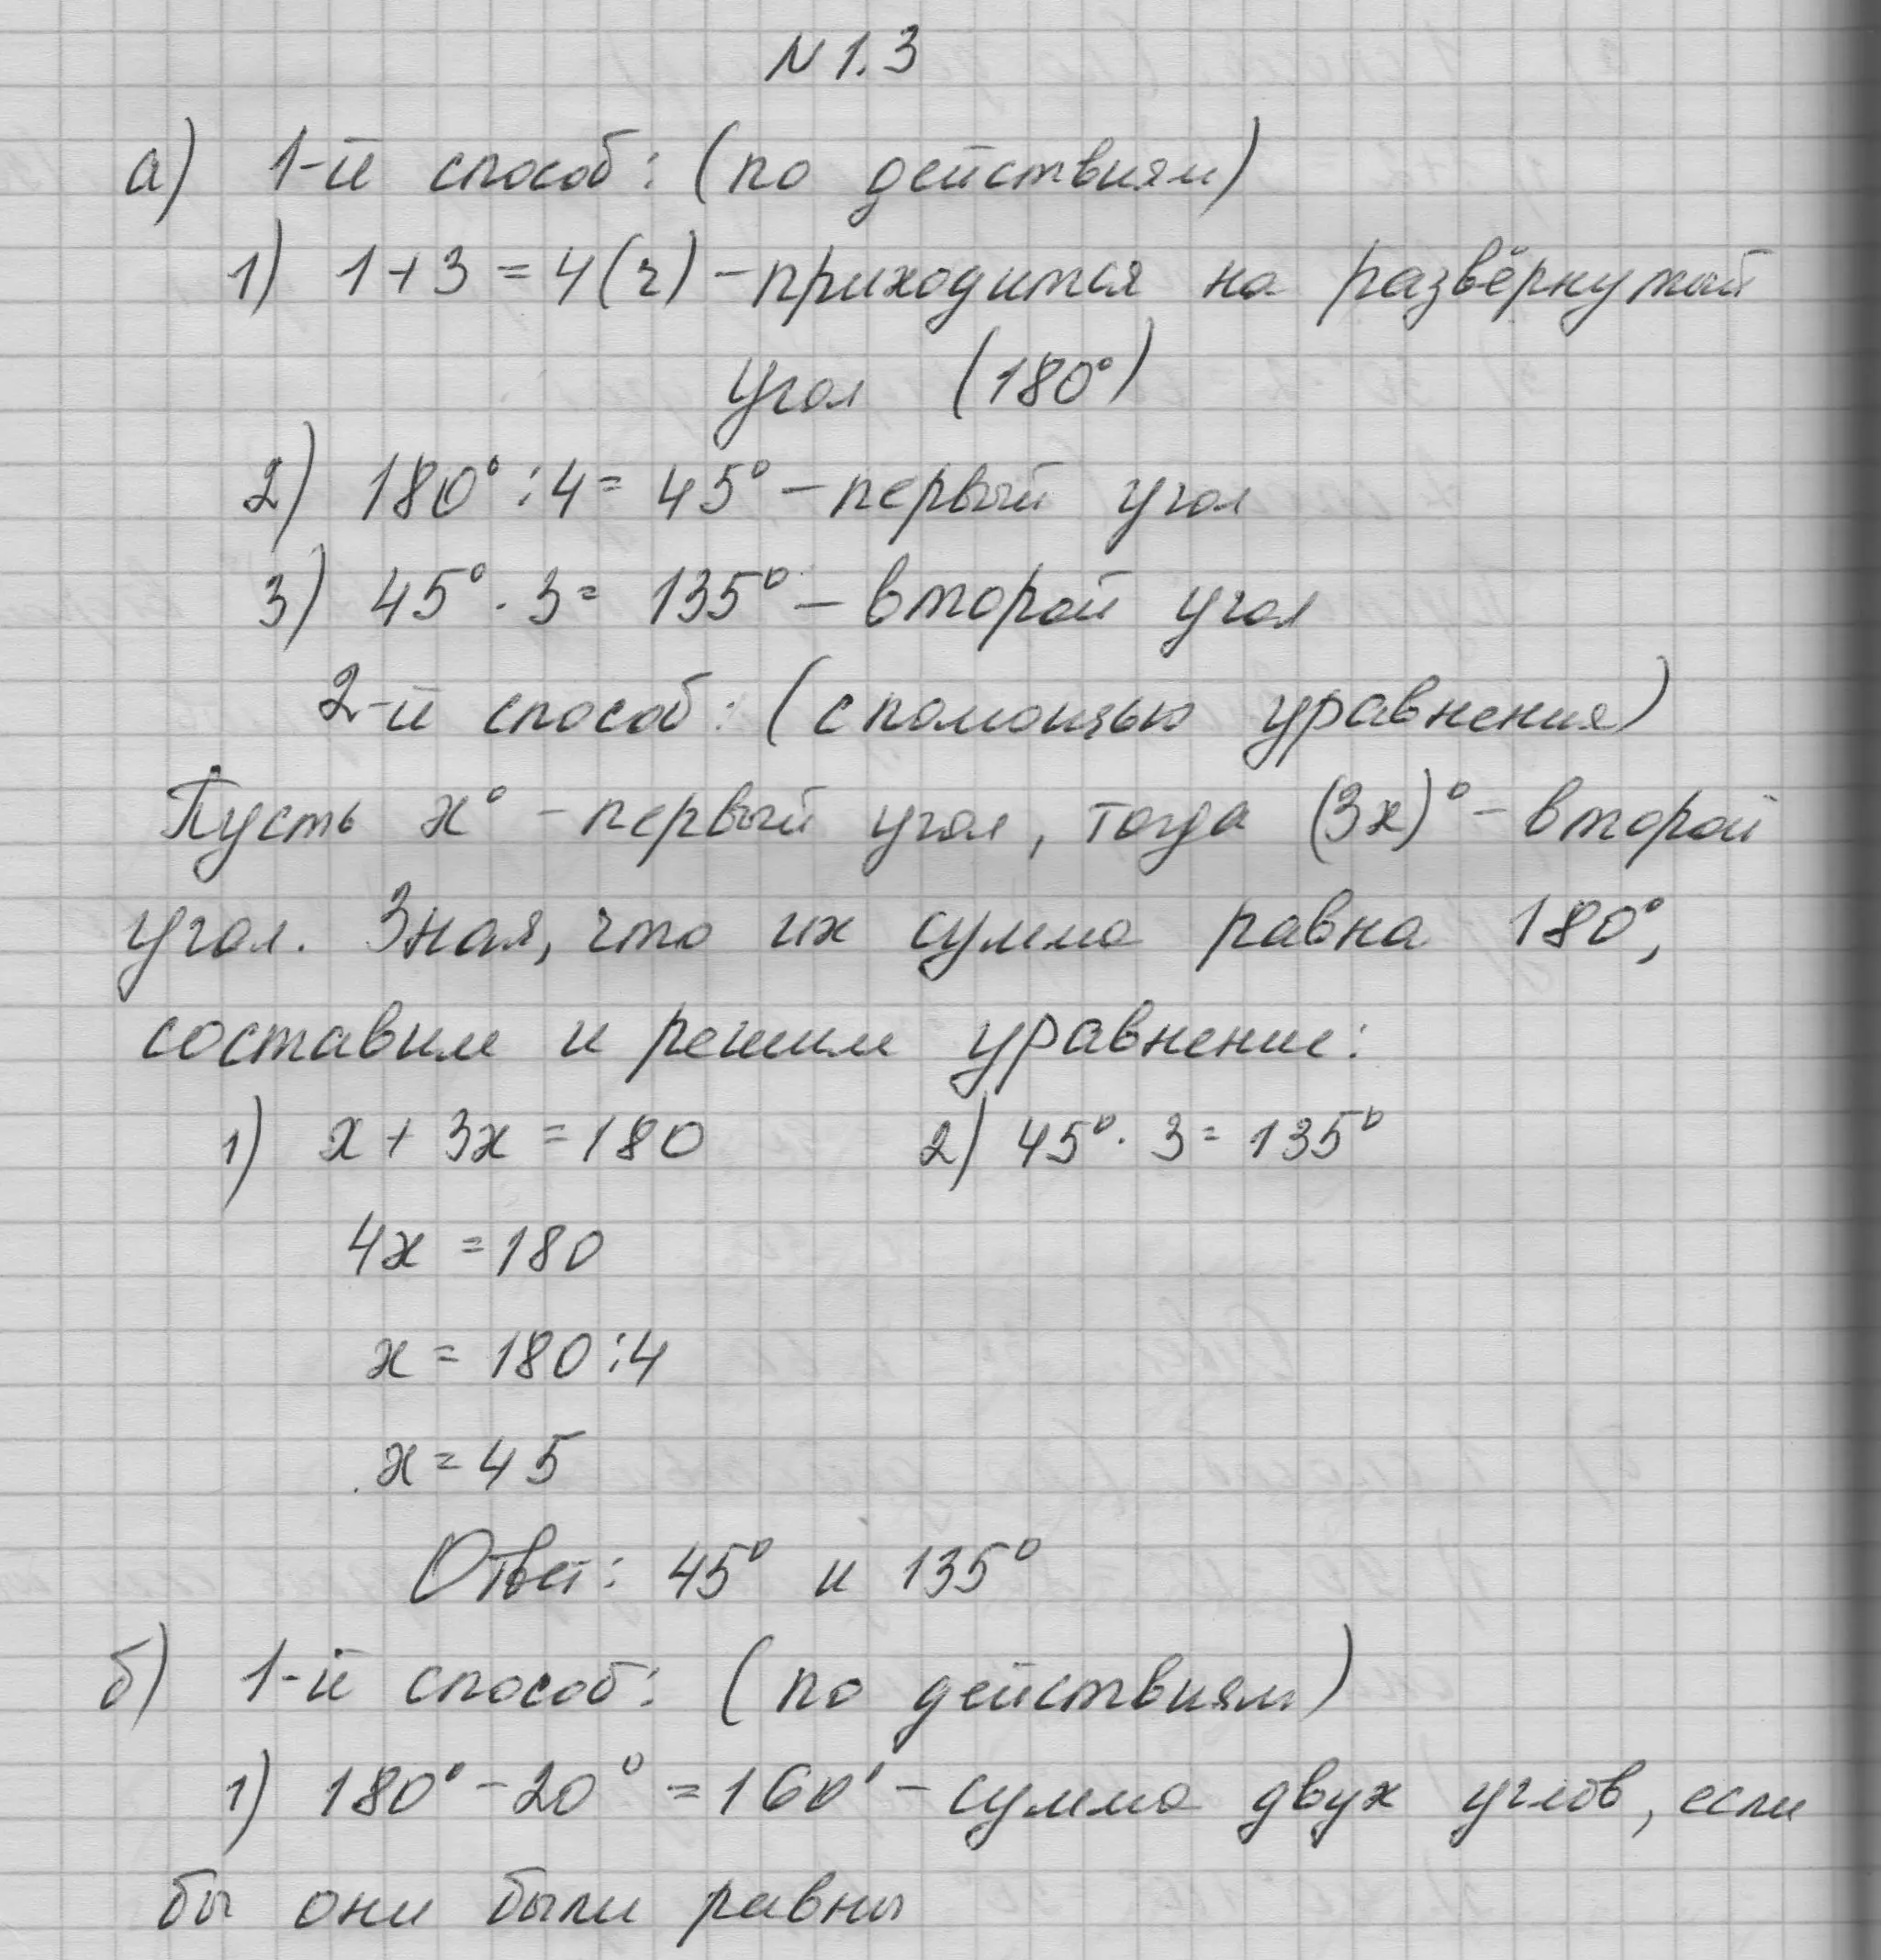 N 1.3
а) 1-й способ: (по действиям)
1) 1 + 3 = 4 (ч) - приходится на развёрнутый
угол (180°)
2) 180° : 4 = 45° - первый угол
3) 45° · 3 = 135° - второй угол
2-й способ: (с помощью уравнения)
Пусть x° - первый угол, тогда (3x)° - второй
угол. Зная, что их сумма равна 180°,
составим и решим уравнение:
1) x + 3x = 180 2) 45° · 3 = 135°
4x = 180
x = 180 : 4
x = 45
Ответ: 45° и 135°
б) 1-й способ: (по действиям)
1) 180° - 20° = 160° - сумма двух углов, если
бы они были равны